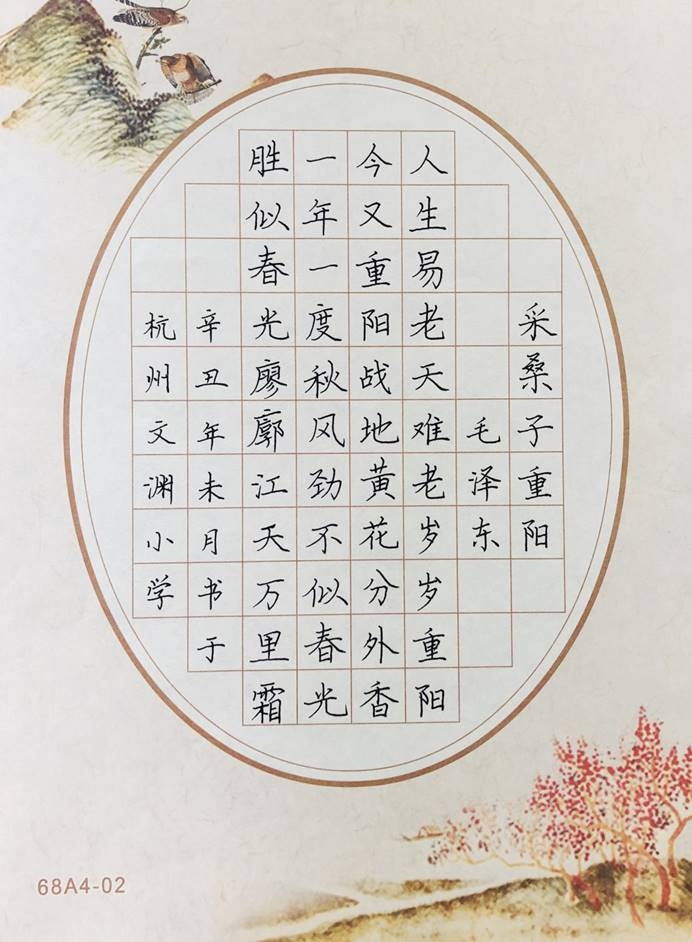 采桑子重阳
毛泽东
人生易老天难老岁岁重阳
今又重阳战地黄花分外香
一年一度秋风劲不似春光
胜似春光廖廓江天万里霜
辛丑年未月书于
杭州文渊小学
68A4-02